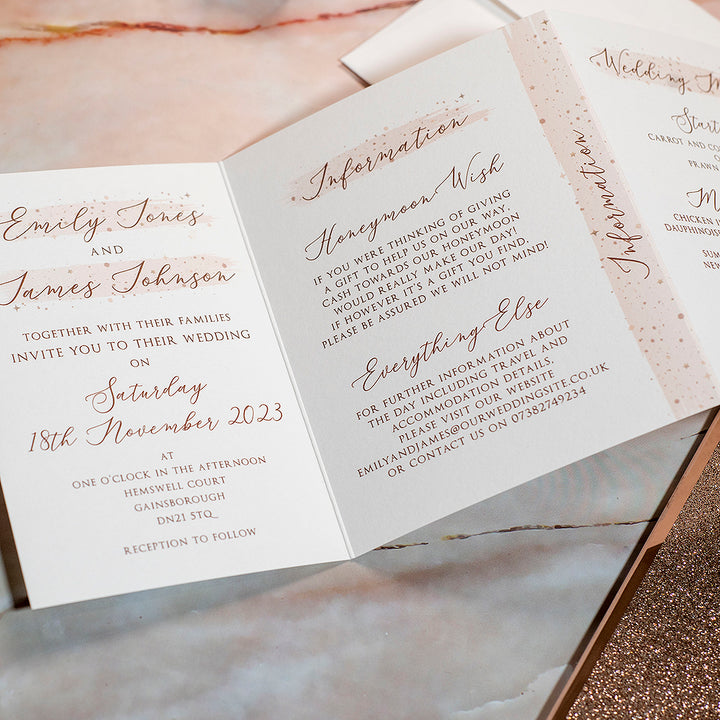 Emily Jones
AND
James Johnson
TOGETHER WITH THEIR FAMILIES
INVITE YOU TO THEIR WEDDING
ON
Saturday
18th November 2023
AT
ONE O'CLOCK IN THE AFTERNOON
HEMSWELL COURT
GAINSBOROUGH
DN21 5TQ
RECEPTION TO FOLLOW
Information
Honeymoon Wish
IF YOU WERE THINKING OF GIVING
A GIFT TO HELP US ON OUR WAY,
CASH TOWARDS OUR HONEYMOON
WOULD REALLY MAKE OUR DAY!
IF HOWEVER IT'S A GIFT YOU FIND,
PLEASE BE ASSURED WE WILL NOT MIND!
Everything Else
FOR FURTHER INFORMATION ABOUT
THE DAY INCLUDING TRAVEL AND
ACCOMMODATION DETAILS,
PLEASE VISIT OUR WEBSITE
EMILYANDJAMES@OURWEDDINGSITE.CO.UK
OR CONTACT US ON 07382749234
Information
Wedding
CARROT AND
PRAWN
CHICKEN